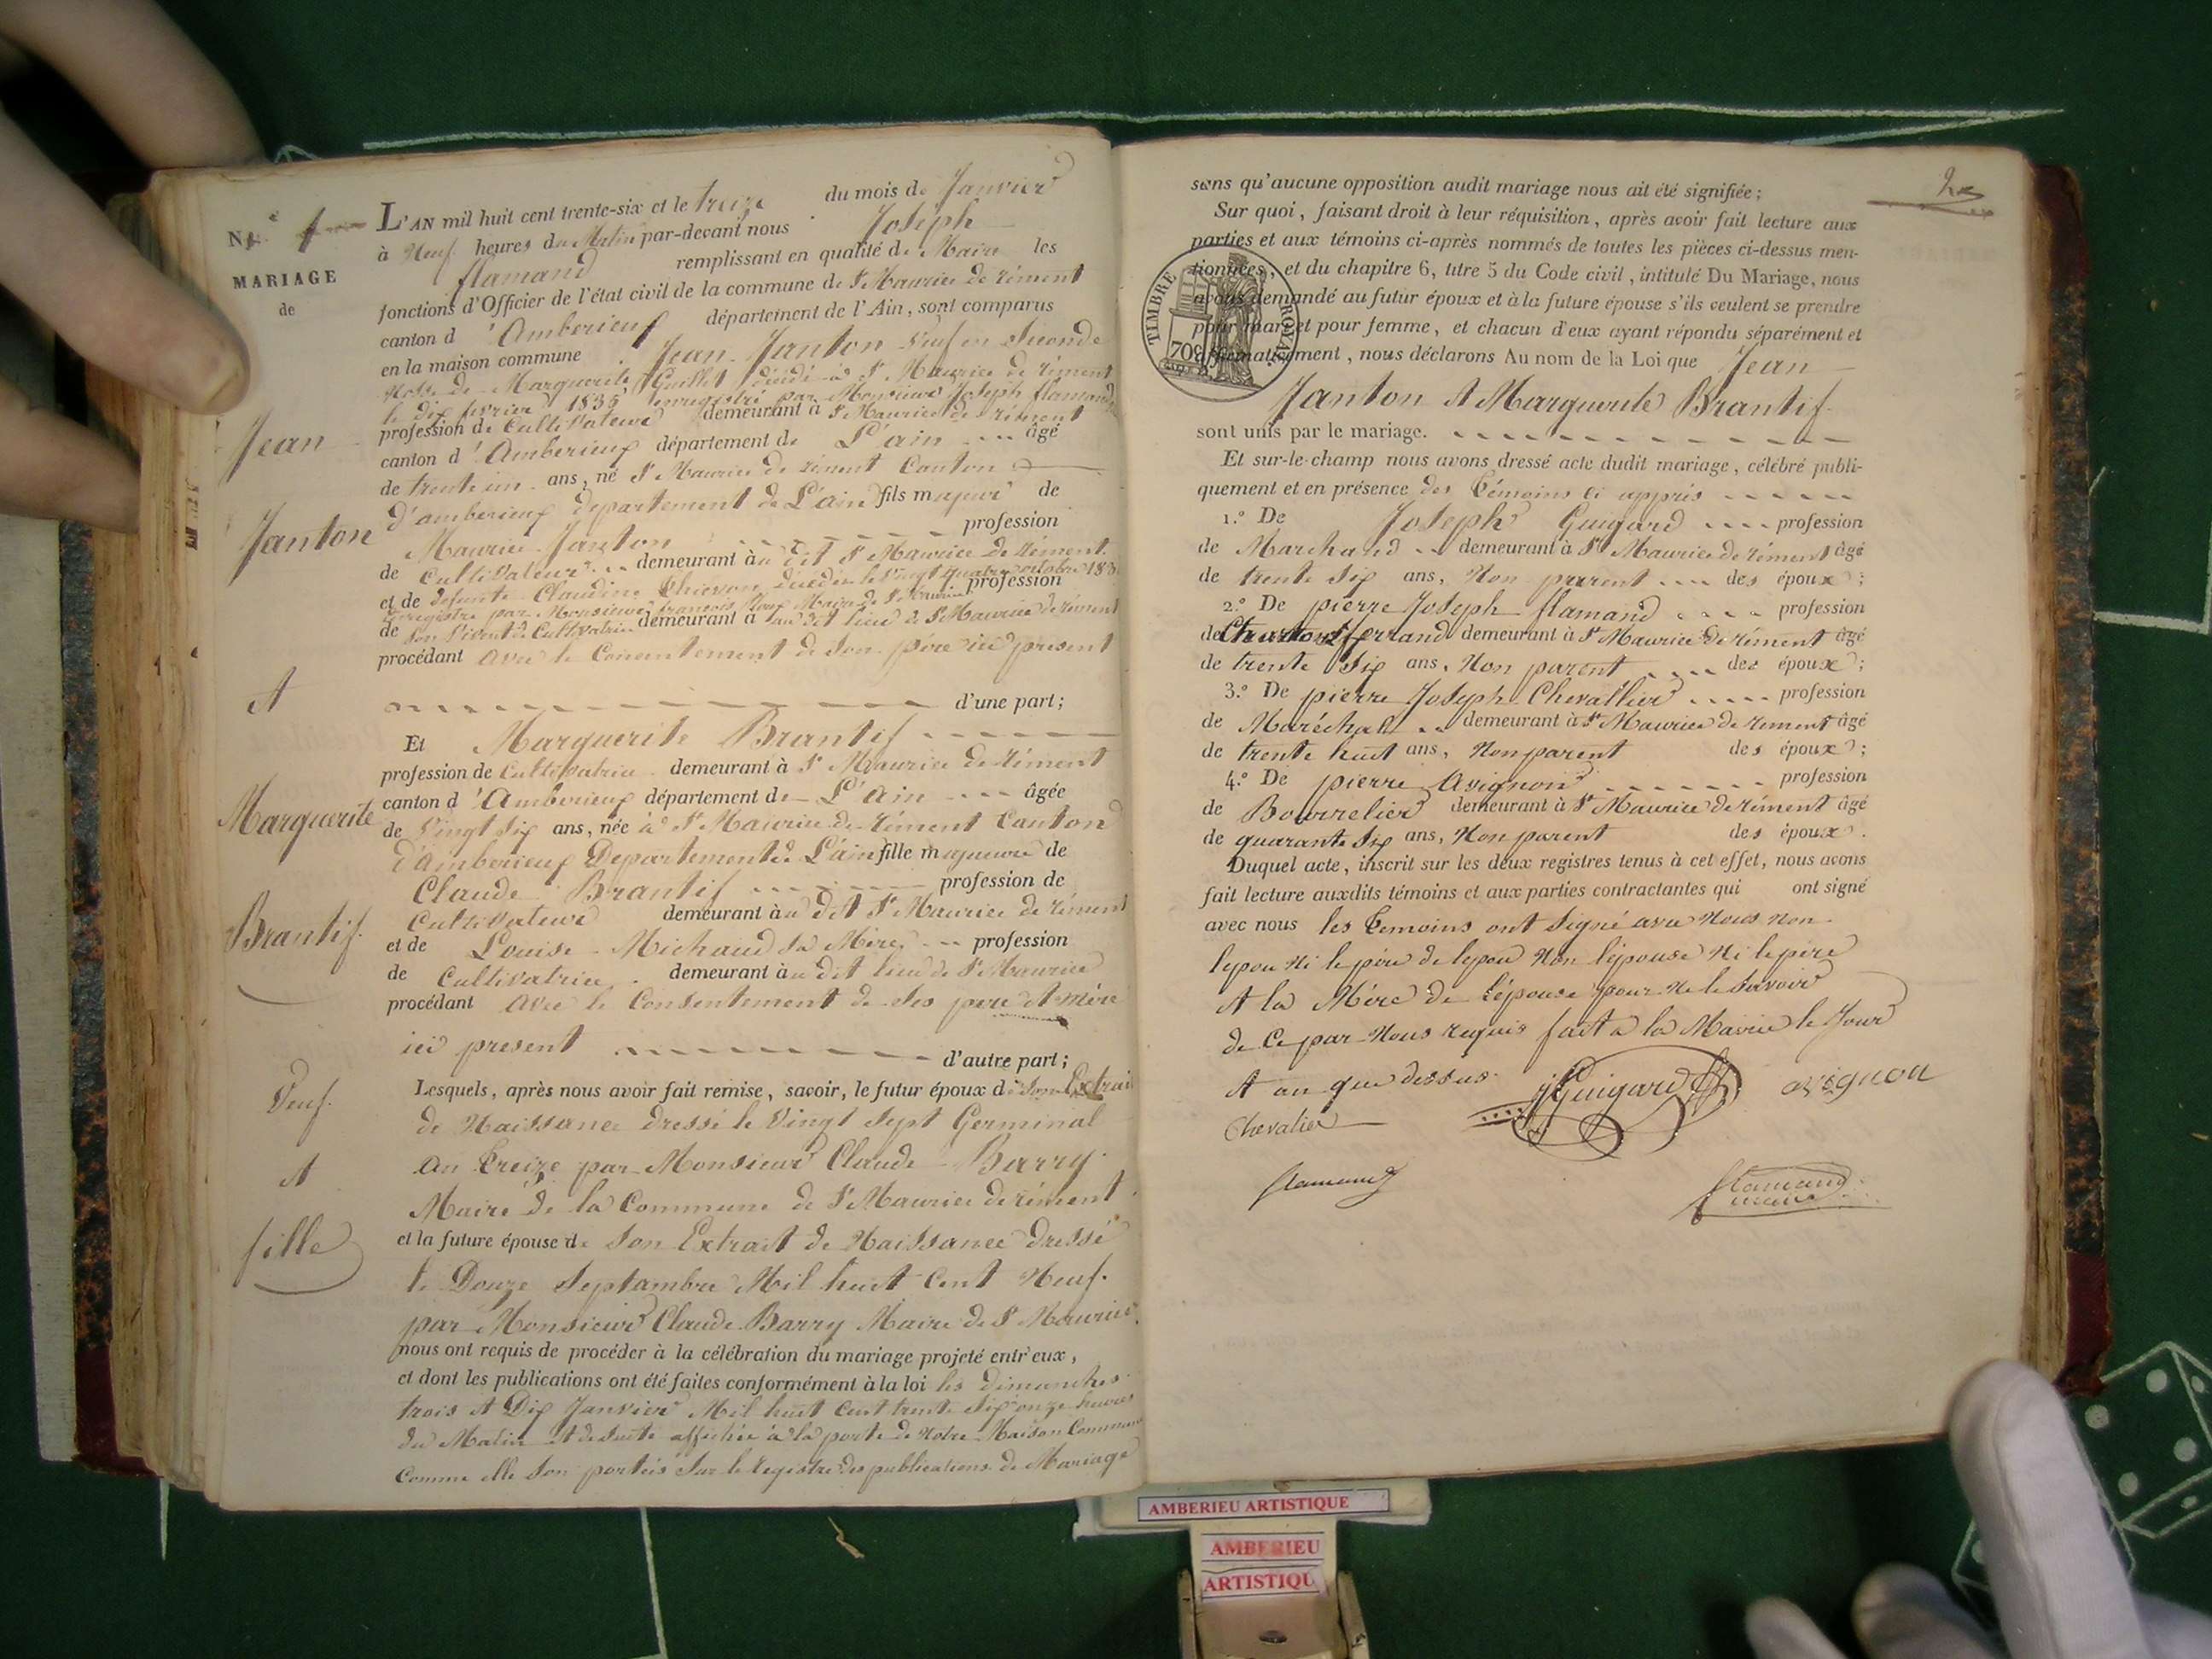 N.º 1
MARIAGE
de
Jean
Janton
et
Marguerite
Brantif.
Veuf.
et
fille
L'AN mil huit cent trente-six et le treize du mois de Janvier
à Neuf heures du Matin par-devant nous Joseph
flamand remplissant en qualité de Maire les
fonctions d'Officier de l'état civil de la commune de St Maurice de rément
canton d'Amberieux département de l'Ain, sont comparus
en la maison commune Jean Janton Veuf en Seconde
Nosse de Marguerite Guillet décédé à St Maurice de rément
le dix fevrier 1835 enregistré par Monsieur Joseph flamand
profession de Cultivateur demeurant à St Maurice de rément
canton d'Amberieux département de L'ain âgé
de trente un ans, né St Maurice de rément Canton
d'amberieux departement de L'ain fils majeur de
Maurice Janton profession
de Cultivateur demeurant au dit St Maurice de rément
et de defunte Claudine décédée le vingt quatre octobre profession
enregistré par Monsieur françois Maire de St Maurice
de Son Vivant de Cultivatrice demeurant à au dit lieu de St Maurice de rément
procédant avec le Consentement de Son père ici présent
d'une part;
Et Marguerite Brantif
profession de Cultivatrice demeurant à St Maurice de rément
canton d'Amberieux département de L'Ain âgée
de Vingt Six ans, née à St Maurice de rément Canton
d'Amberieux Departement de L'ain fille majeure de
Claude Brantif profession de
Cultivateur demeurant au dit St Maurice de rément
et de Louise Michaud Sa Mère profession
de Cultivatrice demeurant au dit lieu de St Maurice
procédant avec le Consentement de Ses père et mère
ici present d'autre part;
Lesquels, après nous avoir fait remise, savoir, le futur époux de Son Extrait
de Naissance dressé le Vingt Sept Germinal
an treize par Monsieur Claude Barry
Maire de la Commune de St Maurice de rément
et la future épouse de Son Extrait de Naissance dressé
le Douze Septambre Mil huit Cent Neuf.
par Monsieur Claude Barry Maire de St Maurice
nous ont requis de procéder à la célébration du mariage projeté entr'eux,
et dont les publications ont été faites conformément à la loi les dimanches
trois et Dix Janvier Mil huit Cent trente Six onze heures
du Matin et de Suite affichée à la porte de Notre Maison Commune
Comme elle Son portées Sur le registre des publications de Mariage
2
sans qu'aucune opposition audit mariage nous ait été signifiée;
Sur quoi, faisant droit à leur réquisition, après avoir fait lecture aux
parties et aux témoins ci-après nommés de toutes les pièces ci-dessus men-
tionnées, et du chapitre 6, titre 5 du Code civil, intitulé Du Mariage, nous
avons demandé au futur époux et à la future épouse s'ils veulent se prendre
pour mari et pour femme, et chacun d'eux ayant répondu séparément et
affirmativement, nous déclarons Au nom de la Loi que Jean
TIMBRE ROYAL
70c
Janton et Marguerite Brantif
sont unis par le mariage.
Et sur-le-champ nous avons dressé acte dudit mariage, célébré publi-
quement et en présence des témoins ci appris
1.º De Joseph Guigard profession
de Marchand demeurant à St Maurice de rément âgé
de trente Six ans, Non parent des époux;
2.º De pierre Joseph flamand profession
de demeurant à St Maurice de rément âgé
de trente Six ans, Non parent des époux;
3.º De pierre Joseph Chevallier profession
de Maréchal demeurant à St Maurice de rément âgé
de trente huit ans, Non parent des époux;
4.º De pierre Avignon profession
de Bourrelier demeurant à St Maurice de rément âgé
de quarante Six ans, Non parent des époux.
Duquel acte, inscrit sur les deux registres tenus à cet effet, nous avons
fait lecture auxdits témoins et aux parties contractantes qui ont signé
avec nous les temoins ont Signé avec Nous non
lepou Ni le père de lepou Non lépouse Ni le père
et la Mère de lépouse pour Ne le Savoir
de Ce par Nous requis fait a la Mairie le Jour
et an que dessus.
JGuigard
avignon
Chevalier
flamand
flamand
maire
AMBERIEU ARTISTIQUE
AMBERIEU
ARTISTIQU